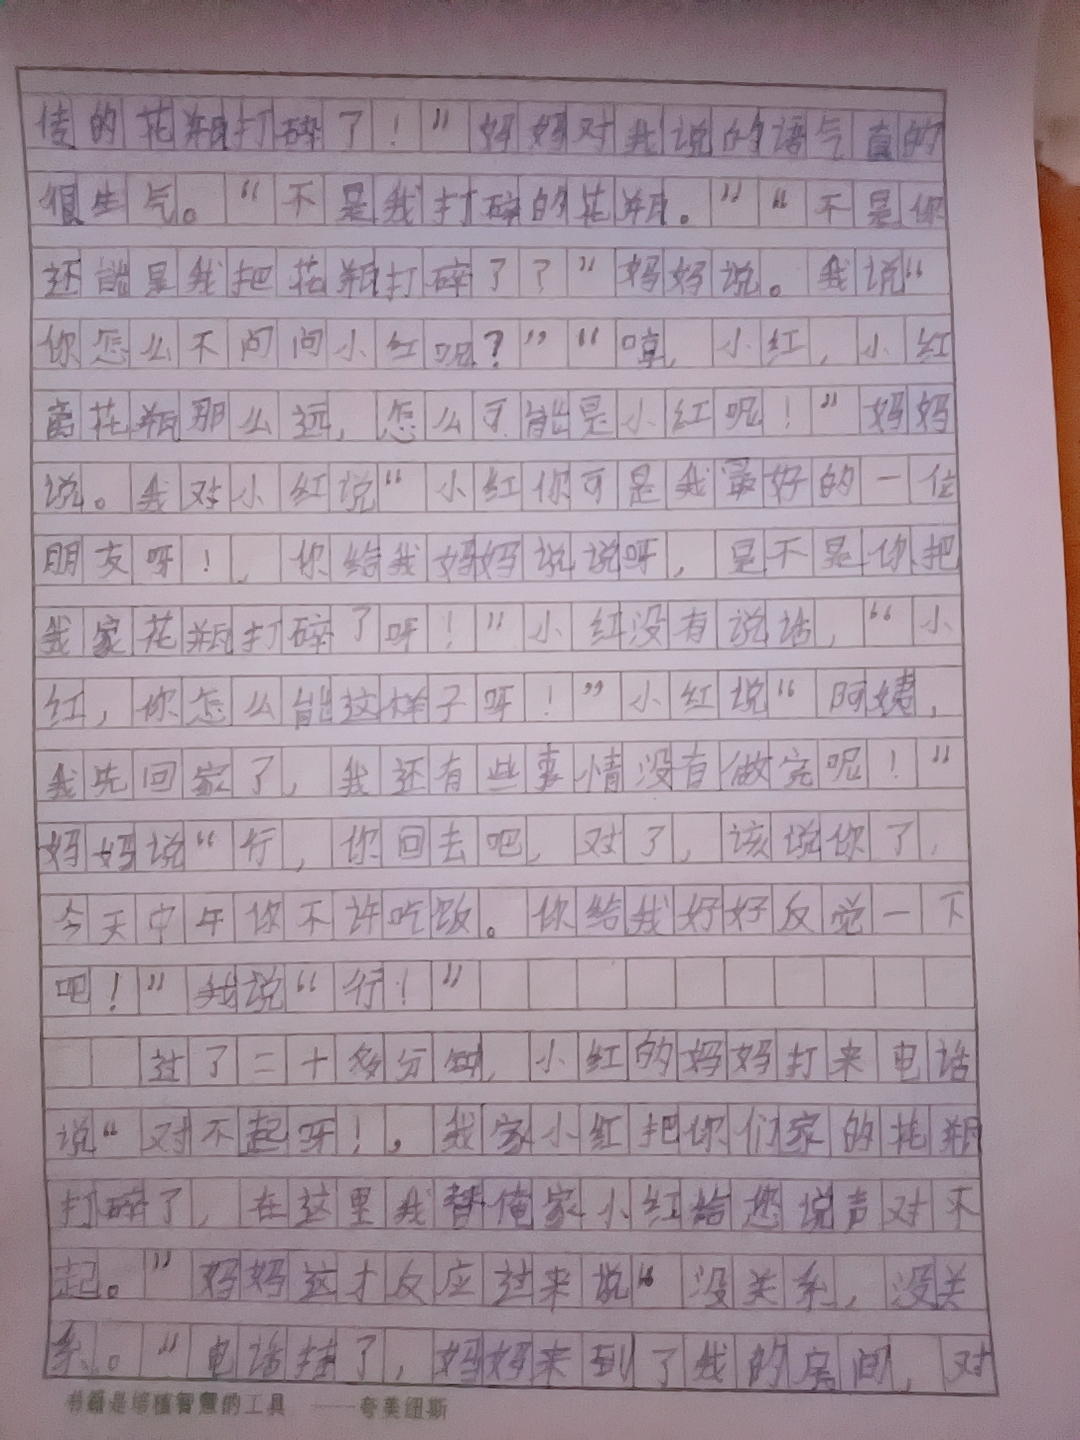 传的花瓶打碎了！”妈妈对我说的语气真的
很生气。“不是我打碎的花瓶。”“不是你
还能是我把花瓶打碎了？”妈妈说。我说“
你怎么不问问小红呢？”“哼，小红，小红
离花瓶那么远，怎么可能是小红呢！”妈妈
说。我对小红说“小红你可是我最好的一位
朋友呀！，你给我妈妈说说呀，是不是你把
我家花瓶打碎了呀！”小红没有说话，“小
红，你怎么能这样子呀！”小红说“阿姨，
我先回家了，我还有些事情没有做完呢！”
妈妈说“行，你回去吧，对了，该说你了，
今天中午你不许吃饭。你给我好好反觉一下
吧！”我说“行！”
过了二十多分钟，小红的妈妈打来电话
说“对不起呀！，我家小红把你们家的花瓶
打碎了，在这里我替俺家小红给您说声对不
起。”妈妈这才反应过来说“没关系，没关
系。“电话挂了，妈妈来到了我的房间，对
书籍是培植智慧的工具 ——夸美纽斯